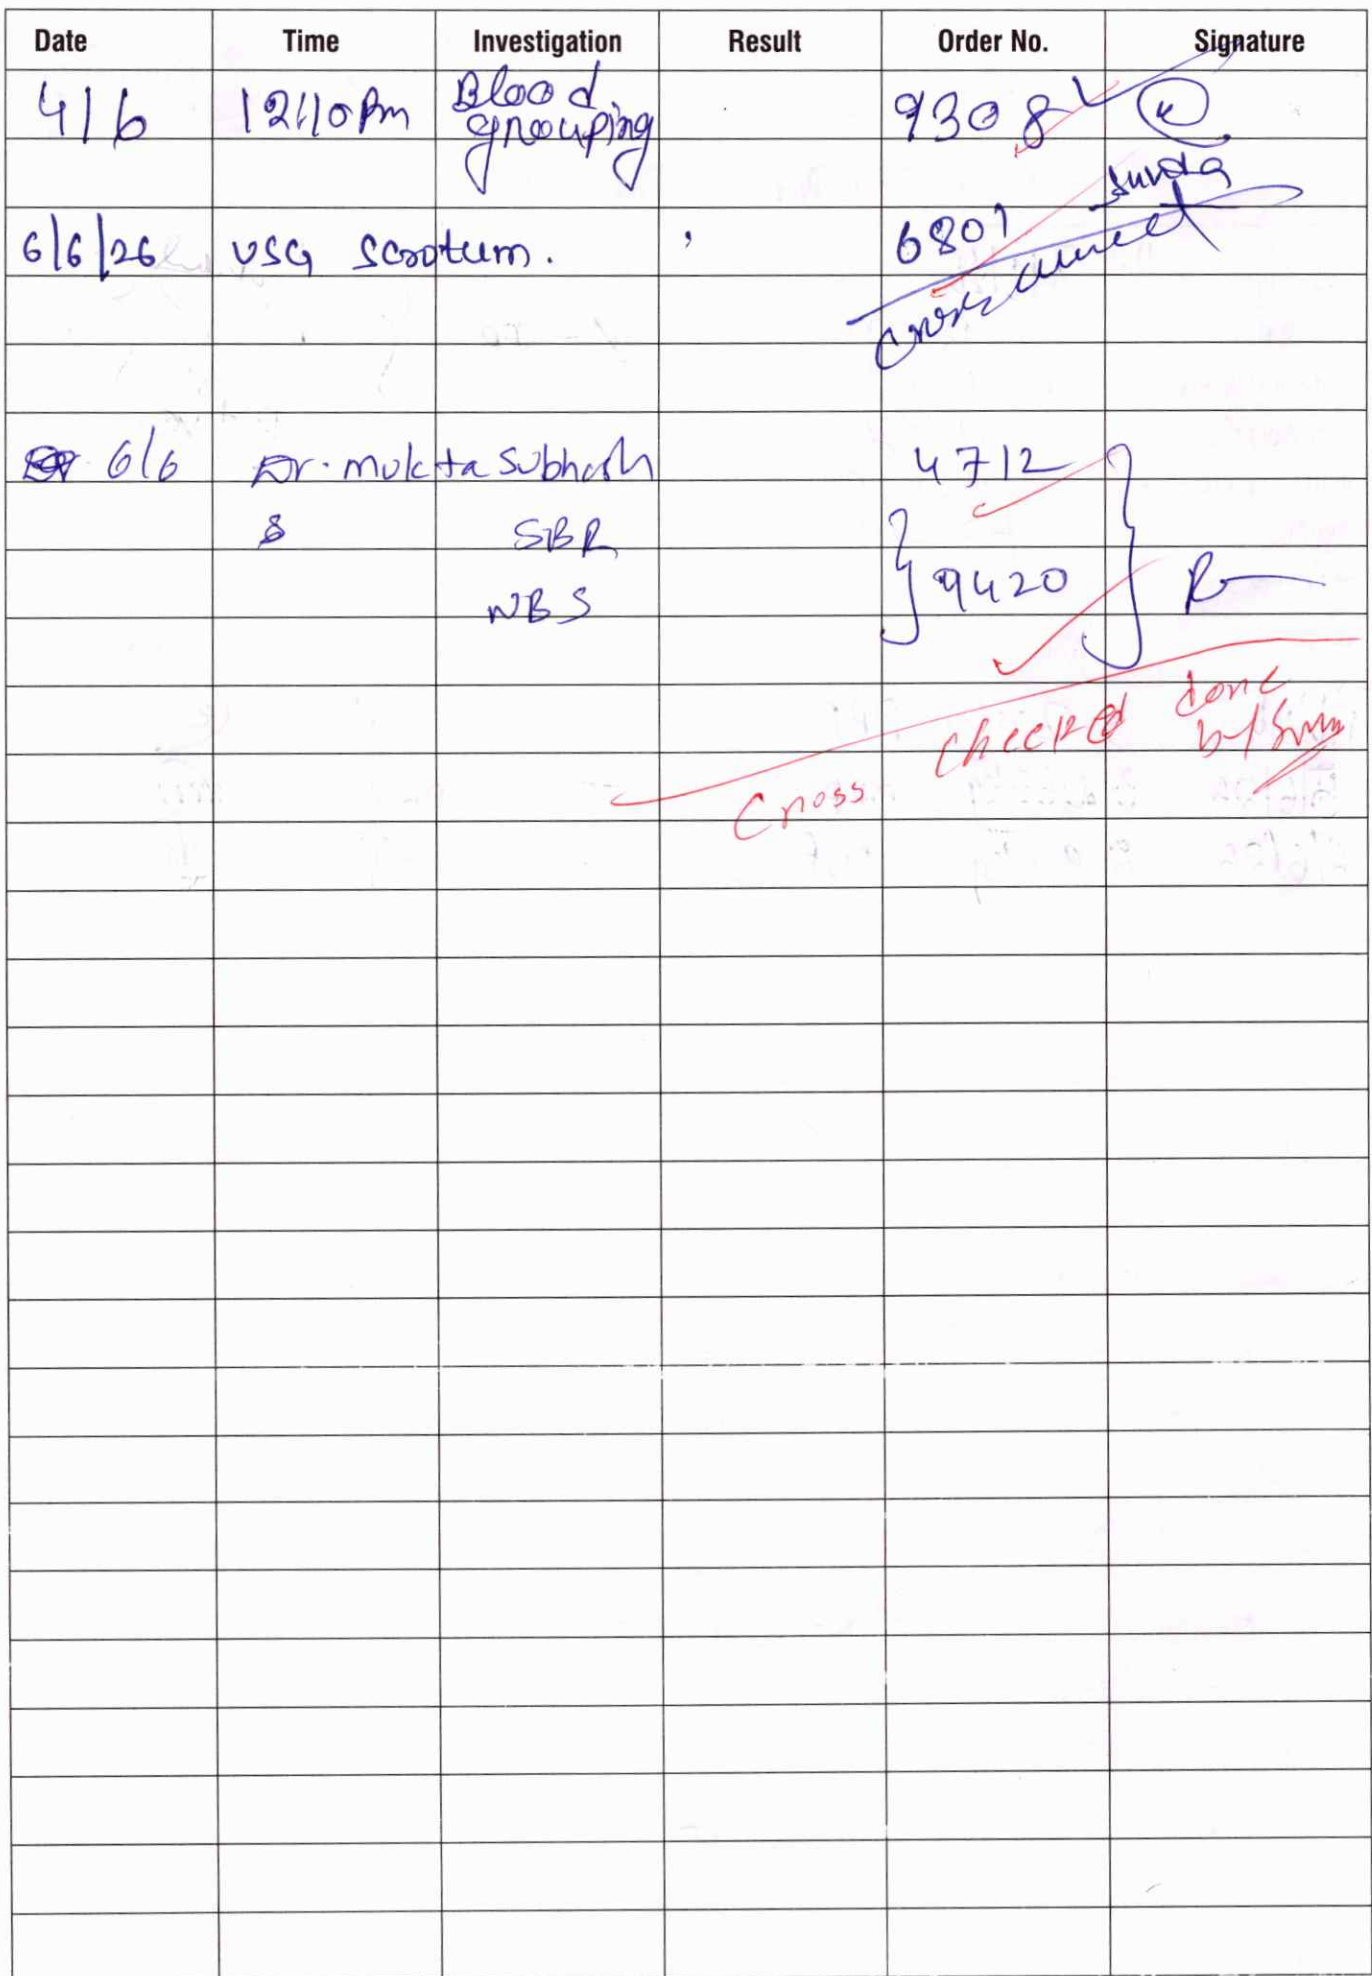 Date Time Investigation Result Order No. Signature
4/6 12:10 Pm Blood grouping 9308
6/6/26 USG Scrotum. 6801
6/6 Dr. Mukta Subhash 4712
SBR
NBS 9420
Cross checked done by